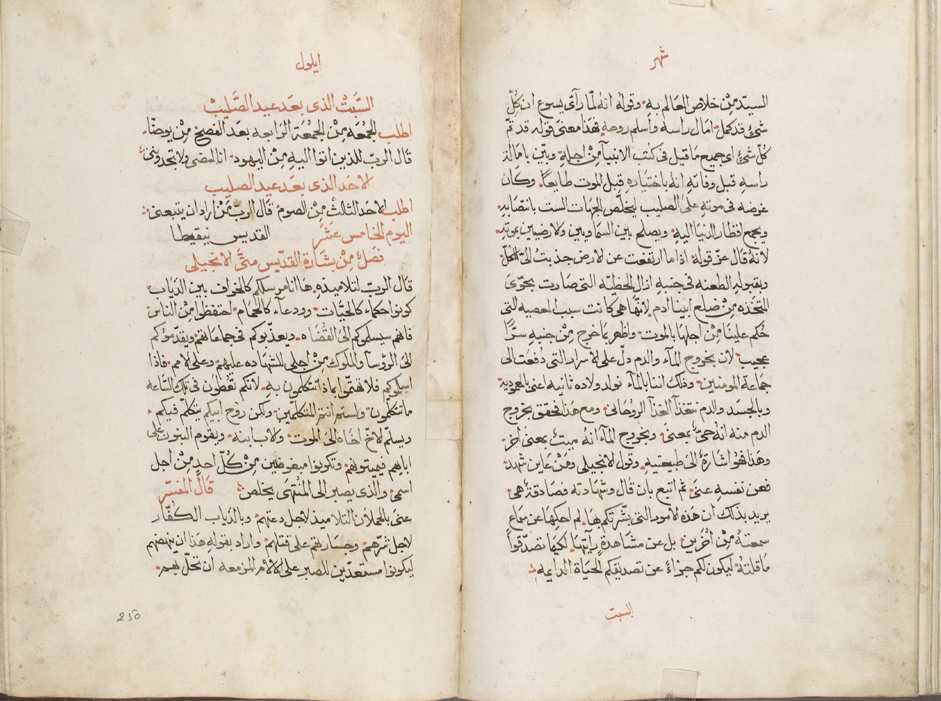 شهر
السيد من خلاص العالم به وقوله انه لما رآى يسوع ان كل
شي قد كمل امال راسه واسلم روحه فهذا معنى قوله قد تم
كل شي اى جميع ما قيل فى كتب الانبيآ من اجله وتبين بامالة
راسه قبل وفاته انه باختياره قبل الموت طايعا وكان
غرضه فى موته على الصليب ليخلص الجهات الست بانتصابه
ويجمع اقطار الدنيا اليه ويصلح بين السماويين والارضيين بموته
لانه قال عز قوله اذا ما ارتفعت عن الارض جذبت الى الكل
وبقبوله الطعنه فى جنبه ازال الخطيه التى صارت بحوى
المتخذه من ضلع ابينا ادم لانها هى كانت سبب المعصيه التى
حكم علينا من اجلها بالموت واظهر بما خرج من جنبه سرا
عجيب لان بخروج المآء والدم دل على الاسرار التى دفعت الى
جماعة المومنين وذلك اننا بالمآء نولد ولاده ثانيه اعنى بالمعمودية
وبالجسد والدم نتغذا الغذآ الروحانى ومع هذا فحقق بخروج
الدم منه انه حى بمعنى وبخروج المآء انه ميت بمعنى آخر
وهذا فهو اشارة الى طبيعتيه وقول الانجيلى ومن عاين شهد
فعن نفسه عنى ثم اتبع بان قال وشهادته فصادقة هى
يريد بذلك ان هذه الامور التى بشرتكم بها لم احكها عن سماع
سمعته من آخرين بل عن مشاهدة رايتها لكيما تصدقوا
ما قلته ليكون لكم جزآء عن تصديقكم الحياة الدايمه
السبت
ايلول
السبت الذى بعد عيد الصليب
اطلب الجمعه من الجمعة الرابعه بعد الفصح من يوحنا
قال الرب للذين اتوا اليه من اليهود انا امضى ولا تجدوننى
الاحد الذى بعد عيد الصليب
اطلب الاحد الثالث من الصوم قال الرب من اراد ان يتبعنى
اليوم الخامس عشر القديس نيقيطا
فصل من بشارة القديس متى الانجيلى
قال الرب لتلاميذه ها انا مرسلكم كالخراف بين الذياب
كونوا حكمآء كالحيات وودعآء كالحمام احتفظوا من الناس
فانهم سيسلمونكم الى القضاه ويعذبونكم فى جماعاتهم ويقدمونكم
الى الروسآ والملوك من اجلى للشهاده عليهم وعلى الامم فاذا
اسلموكم فلا تهتموا بماذا تتكلمون به لانكم تعطون فى تلك الساعه
ما تتكلمون ولستم انتم المتكلمين ولكن روح ابيكم يتكلم فيكم
ويسلم الاخ اخاه الى الموت والاب ابنه ويقوم البنون على
ابايهم فيميتونهم وتكونوا مبغوضين من كل احد من اجل
اسمى والذى يصبر الى المنتهى يخلص قال المفسر
عنى بالحملان التلاميذ لاجل دعتهم وبالذياب الكفار
لاجل شرهم وجسارتهم على قتلهم واراد بقوله هذا ان ينهضهم
ليكونوا مستعدين للصبر على الآلام المزمعه ان تحل بهم
250